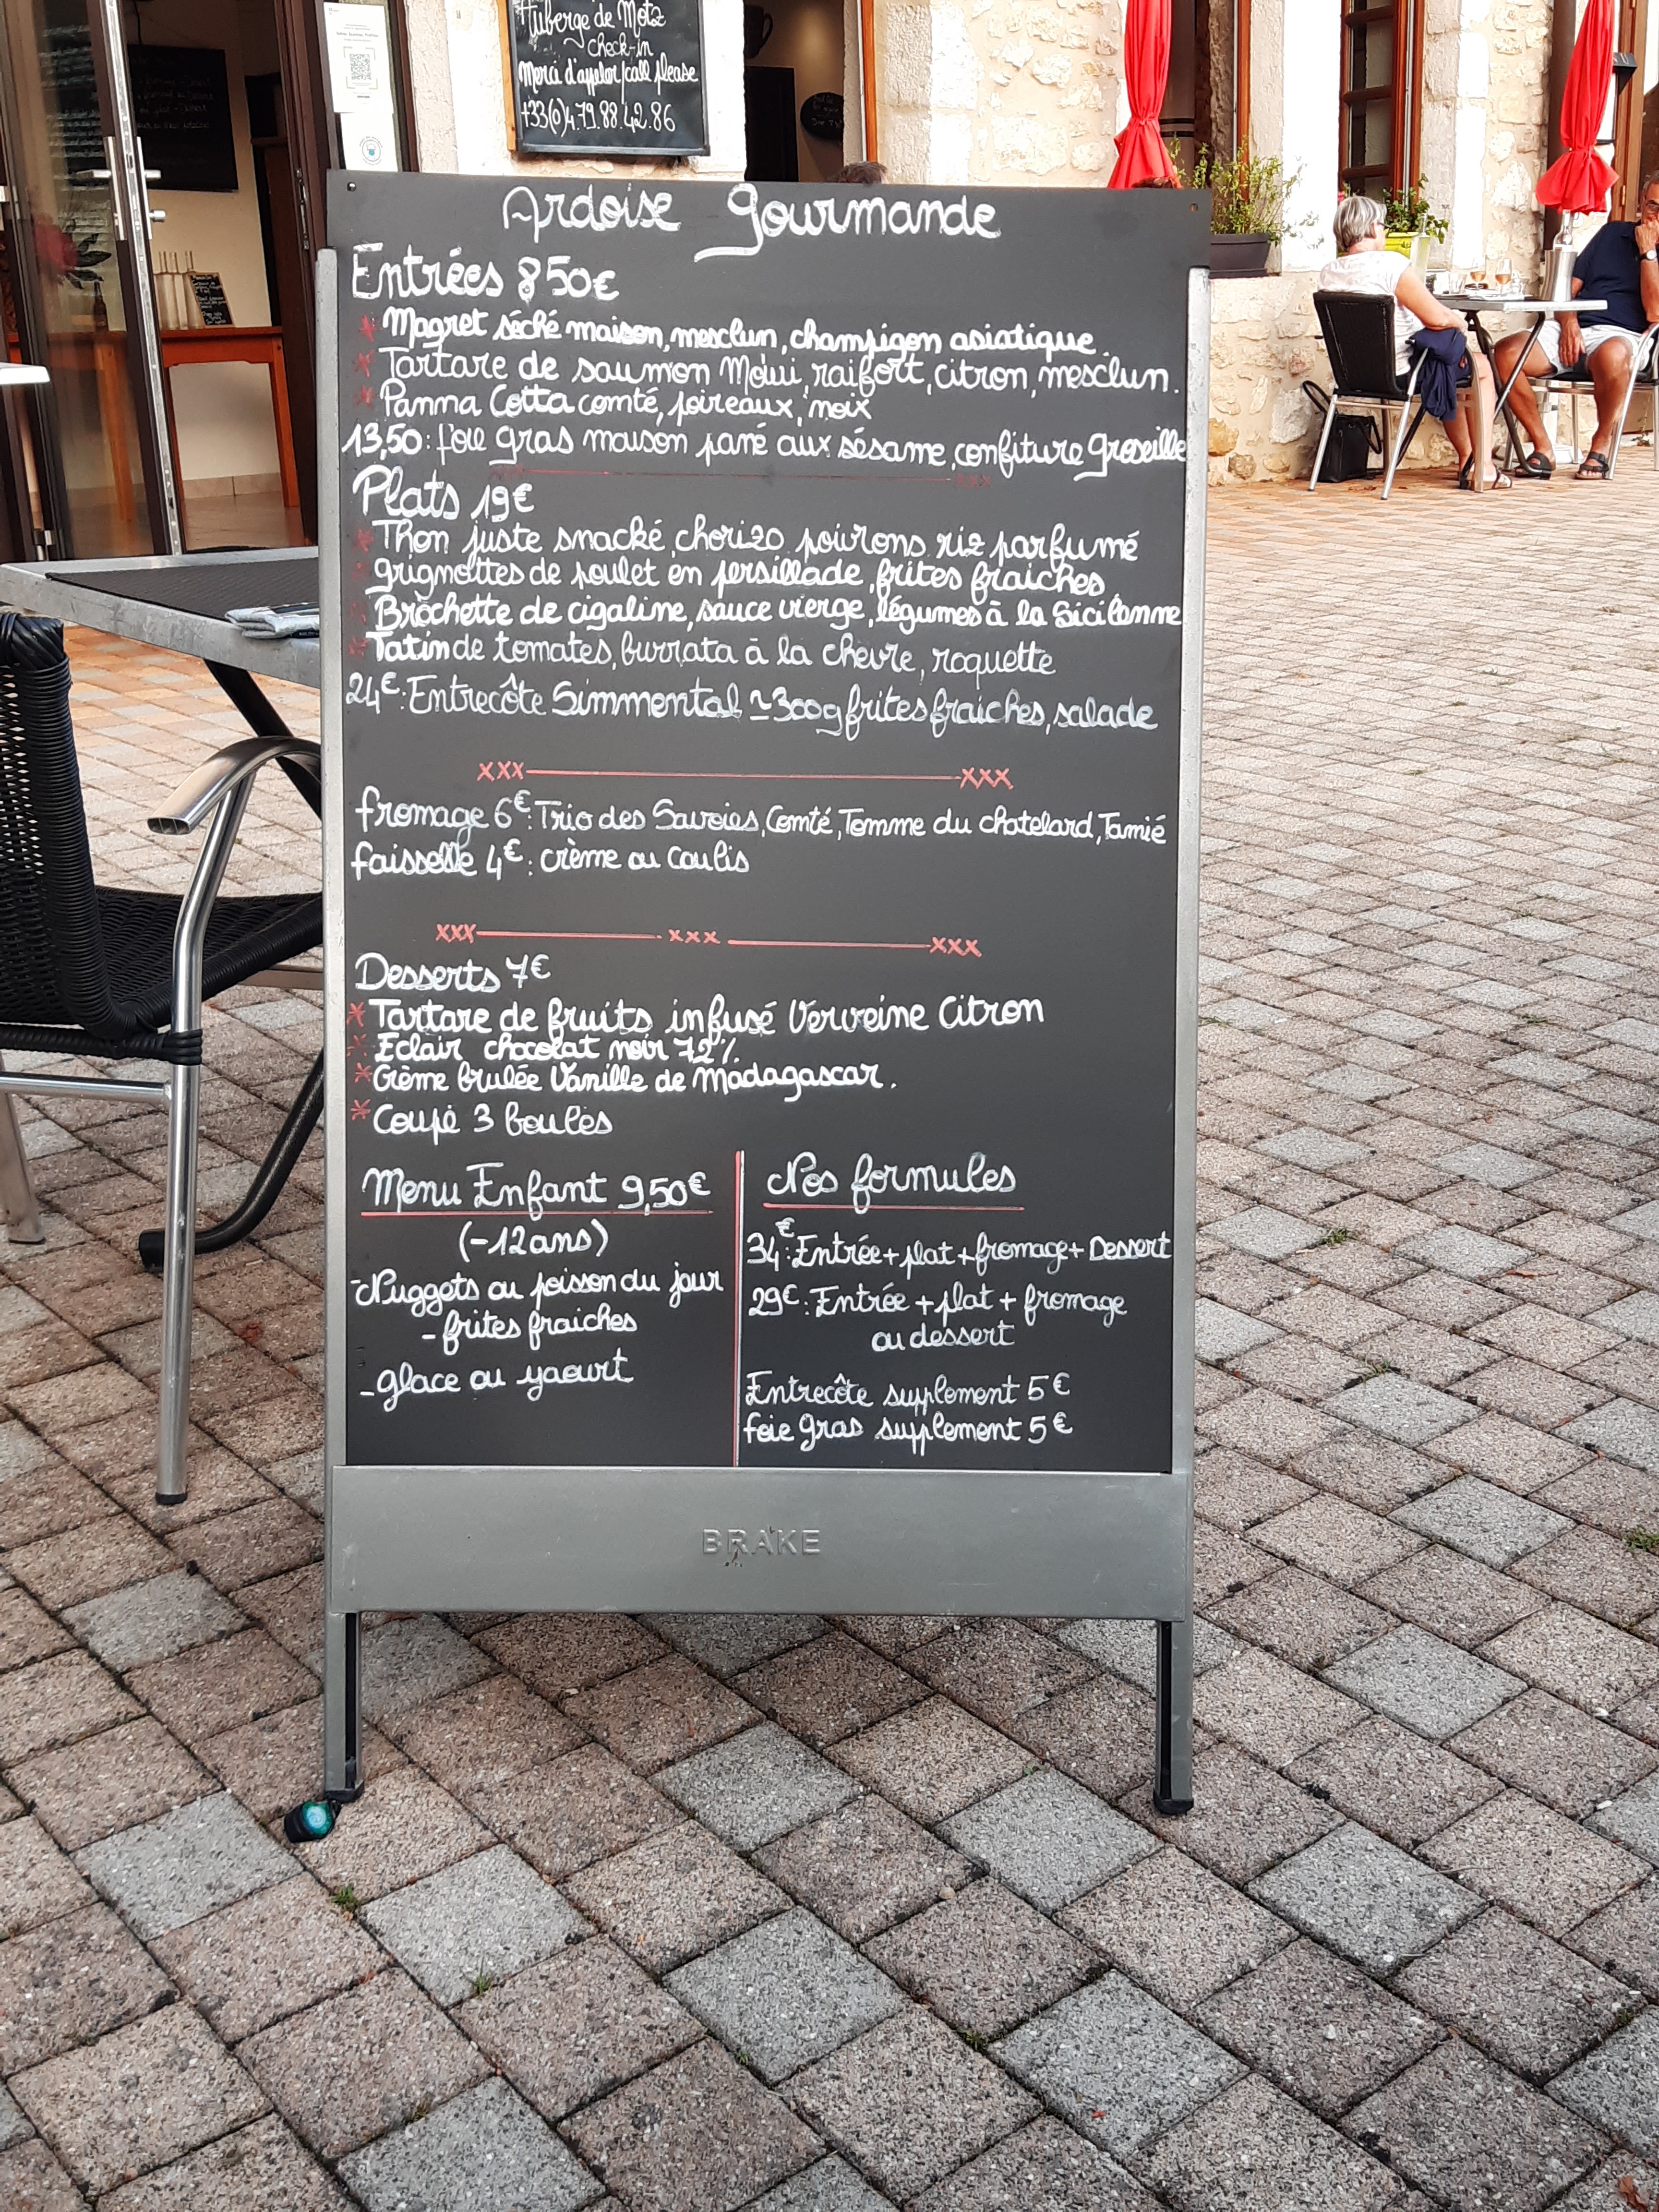 Auberge de Motz
check-in
Merci d'appeler/call please
+33(0)4.79.88.42.86
Ardoise Gourmande
Entrées 850€
* Magret séché maison, mesclun, champigon asiatique.
* Tartare de saumon Mowi, raifort, citron, mesclun.
* Panna Cotta comté, poireaux, noix
13,50: foie gras maison pané aux sésame, confiture groseille
Plats 19€
* Thon juste snacké, chorizo poivrons riz parfumé
* grignottes de poulet en persillade, frites fraiches
* Brochette de cigaline, sauce vierge, légumes à la Sicilenne
* Tatin de tomates, burrata à la chevre, roquette
24€: Entrecôte Simmental ~300g frites fraiches, salade
xxx xxx
fromage 6€: Trio des Savoies, Comté, Tomme du chatelard, Tamié
faisselle 4€: crème ou coulis
xxx xxx xxx
Desserts 7€
* Tartare de fruits infusé Verveine Citron
* Eclair chocolat noir 72%
* Crème brulée Vanille de Madagascar.
* Coupe 3 boules
Menu Enfant 9,50€
(-12ans)
-Nuggets ou poisson du jour
- frites fraiches
- glace ou yaourt
Nos formules
34€: Entrée + plat + fromage + Dessert
29€: Entrée + plat + fromage
ou dessert
Entrecôte supplement 5€
foie gras supplement 5€
BRAKE